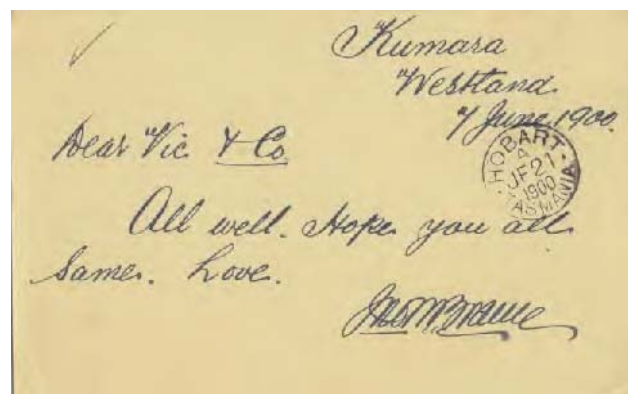 Kumara
Westland.
7 June, 1900.
Dear Vic & Co
HOBART
A
JE21
1900
TASMANIA
All well. Hope you all
same. Love.